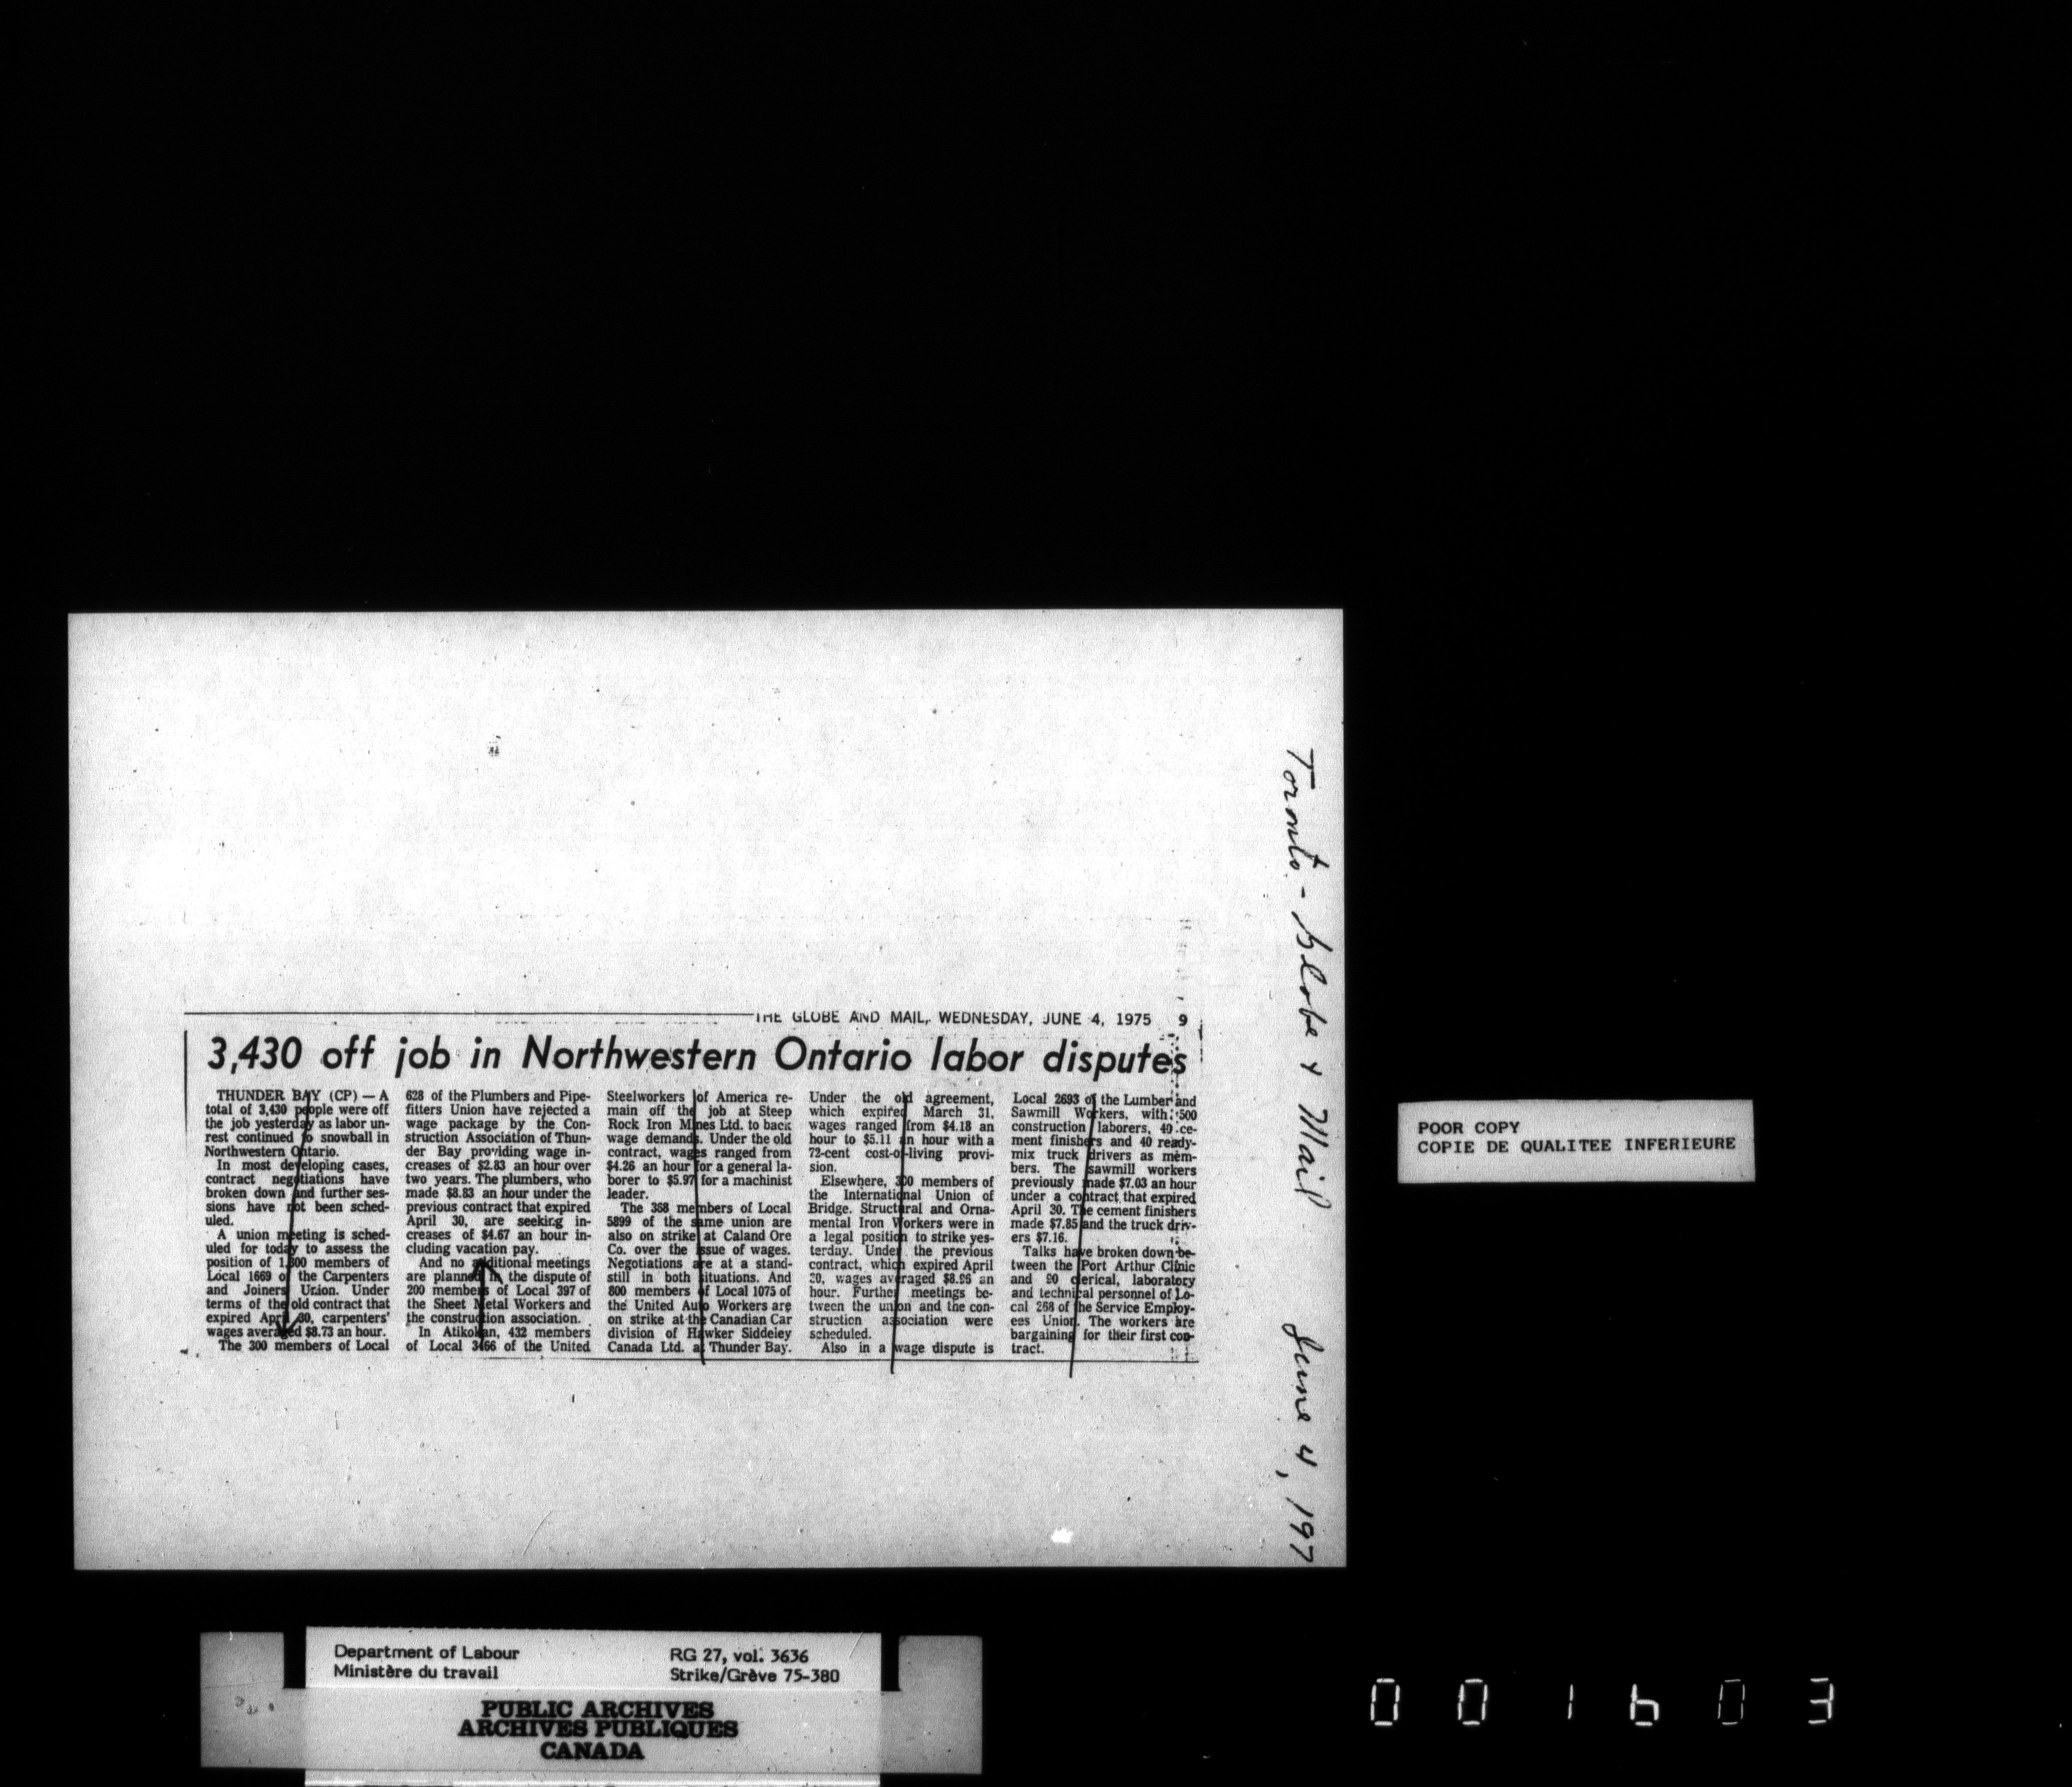 THE GLOBE AND MAIL, WEDNESDAY, JUNE 4, 1975 9
3,430 off job in Northwestern Ontario labor disputes
THUNDER BAY (CP) — A
total of 3,430 people were off
the job yesterday as labor un-
rest continued to snowball in
Northwestern Ontario.
In most developing cases,
contract negotiations have
broken down and further ses-
sions have not been sched-
uled.
A union meeting is sched-
uled for today to assess the
position of members of
Local 1669 of the Carpenters
and Joiners Union. Under
terms of the old contract that
expired April 30, carpenters'
wages averaged $8.73 an hour.
The 300 members of Local
628 of the Plumbers and Pipe-
fitters Union have rejected a
wage package by the Con-
struction Association of Thun-
der Bay providing wage in-
creases of $2.83 an hour over
two years. The plumbers, who
made $8.83 an hour under the
previous contract that expired
April 30, are seeking in-
creases of $4.67 an hour in-
cluding vacation pay.
And no additional meetings
are planned in the dispute of
200 members of Local 397 of
the Sheet Metal Workers and
the construction association.
In Atikokan, 432 members
of Local 3466 of the United
Steelworkers of America re-
main off the job at Steep
Rock Iron Mines Ltd. to back
wage demands. Under the old
contract, wages ranged from
$4.26 an hour for a general la-
borer to $5.97 for a machinist
leader.
The 368 members of Local
5899 of the same union are
also on strike at Caland Ore
Co. over the issue of wages.
Negotiations are at a stand-
still in both situations. And
800 members of Local 1075 of
the United Auto Workers are
on strike at the Canadian Car
division of Hawker Siddeley
Canada Ltd. at Thunder Bay.
Under the old agreement,
which expired March 31,
wages ranged from $4.18 an
hour to $5.11 an hour with a
72-cent cost-of-living provi-
sion.
Elsewhere, 300 members of
the International Union of
Bridge. Structural and Orna-
mental Iron Workers were in
a legal position to strike yes-
terday. Under the previous
contract, which expired April
30, wages averaged $8.96 an
hour. Further meetings be-
tween the union and the con-
struction association were
scheduled.
Also in a wage dispute is
Local 2693 of the Lumber and
Sawmill Workers, with 500
construction laborers, 40 ce-
ment finishers and 40 ready-
mix truck drivers as mem-
bers. The sawmill workers
previously made $7.03 an hour
under a contract that expired
April 30. The cement finishers
made $7.85 and the truck driv-
ers $7.16.
Talks have broken down be-
tween the Port Arthur Clinic
and 90 clerical, laboratory
and technical personnel of Lo-
cal 268 of the Service Employ-
ees Union. The workers are
bargaining for their first con-
tract.
Toronto - Globe & Mail June 4, 197
POOR COPY
COPIE DE QUALITEE INFERIEURE
Department of Labour
Ministère du travail
RG 27, vol. 3636
Strike/Grève 75-380
PUBLIC ARCHIVES
ARCHIVES PUBLIQUES
CANADA
001603